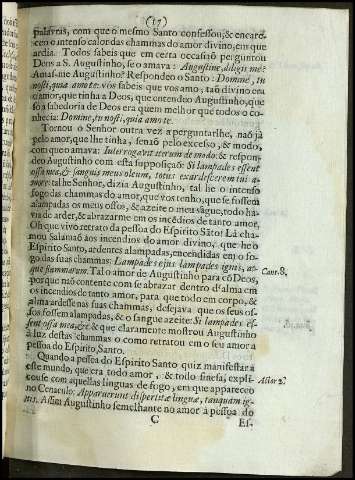 (17)
palavras, com que o mesmo Santo confessou, & encare-
ceo o intenso calor das chammas do amor divino, em que
ardia. Todos sabeis que em certa occasiaõ perguntou
Deos a S. Augustinho, se o amava: Augustine, diligis me?
Amas-me Augustinho? Respondeo o Santo: Domine, tu
nosti, quia amo te: vòs sabeis que vos amo; taõ divino era
o amor, que tinha a Deos, que entendeo Augustinho, que
sò a sabedoria de Deos era quem melhor que todos o co-
nhecia: Domine, tu nosti, quia amo te.
Tornou o Senhor outra vez a perguntarlhe, naõ jà
pelo amor, que lhe tinha, senaõ pelo excesso, & modo,
com que o amava: Interrogavit iterum de modo: & respon-
deo Augustinho com esta supposiçaõ: Si lampades essent
ossa mea, & sanguis meus oleum, totus exardescerem tui a-
more: tal he Senhor, dizia Augustinho, tal he o intenso
fogo das chammas do amor, que vos tenho, que se fossem
alampadas os meus ossos, & azeite o meu sãgue, todo ha-
via de arder, & abrazarme em os incẽdios de tanto amor.
Oh que vivo retrato da pessoa do Espirito Sãto! Là cha-
mou Salamaõ aos incendios do amor divino, que he o
Espirito Santo, ardentes alampadas, encendidas em o fo-
go das suas chammas: Lampades ejus lampades ignis, at-
que flammarum. Tal o amor de Augustinho para cõ Deos,
Cant. 8.
porque naõ contente com se abrazar dentro d'alma em
os incendios de tanto amor, para que todo em corpo, &
alma ardesse nas suas chammas, desejava que os seus os-
sos fossem alampadas, & o sangue azeite: Si lampades es-
sent ossa mea, &c & que claramente mostrou Augustinho
à luz destas chammas o como retratou em o seu amor a
pessoa do Espirito, Santo.
Quando a pessoa do Espirito Santo quiz manifestar a
este mundo, que era todo amor, & todo finesa, expli-
couse com aquellas linguas de fogo, em que appareceo
Actor 2.
no Cenaculo: Apparuerunt dispertitæ linguæ, tanquàm ig-
nis. Assim Augustinho semelhante no amor à pessoa do
C
Es-